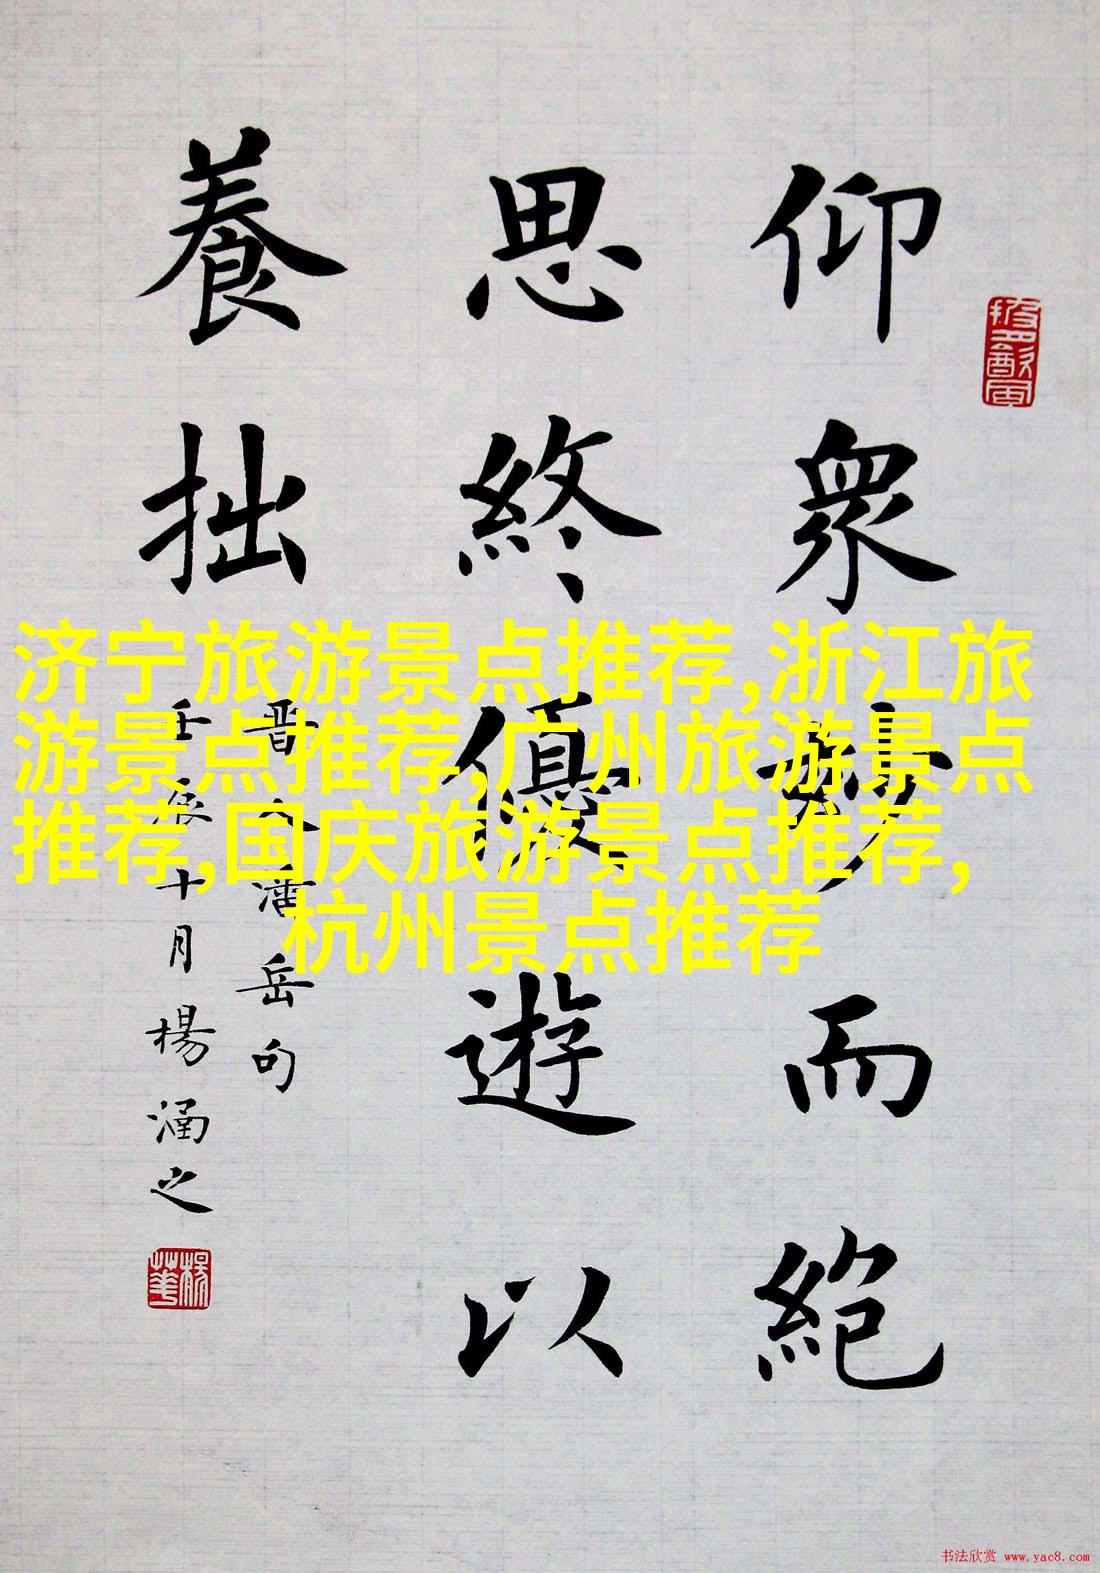 仰衆妙而絕
思終優遊以
養拙
晋人潘岳句
壬辰十月楊涵之
济宁旅游景点推荐,浙江旅
游景点推荐,广州旅游景点
推荐,国庆旅游景点推荐,
杭州景点推荐
书法欣赏 www.yac8.com